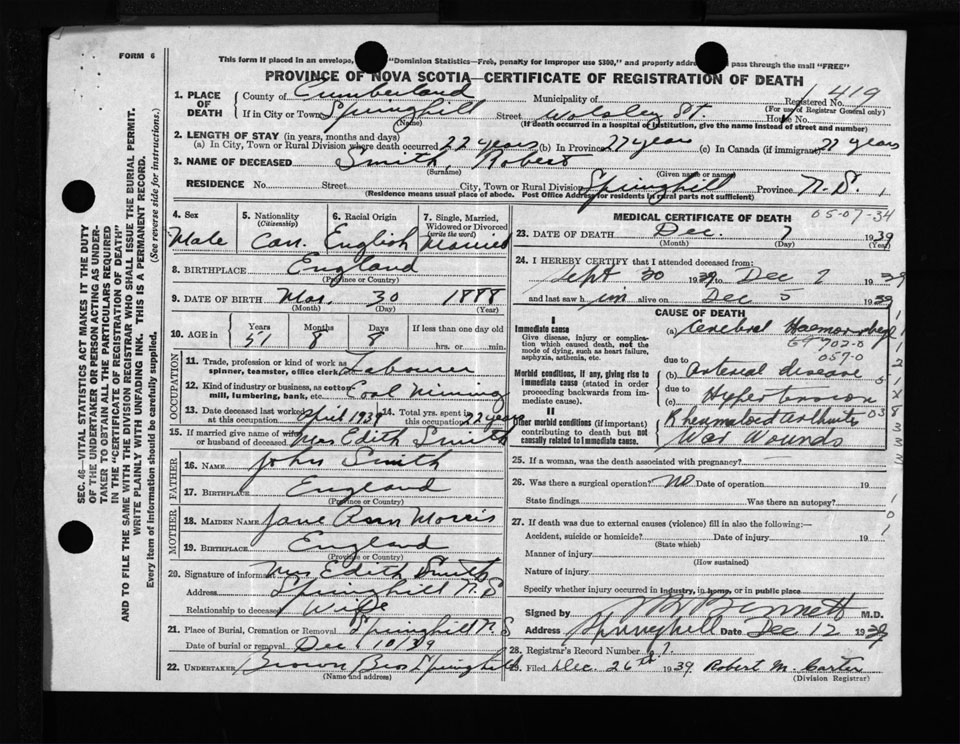 FORM 6
This form if placed in an envelope, "Dominion Statistics—Free, penalty for improper use $300," and properly addre pass through the mail "FREE"
PROVINCE OF NOVA SCOTIA—CERTIFICATE OF REGISTRATION OF DEATH
1. PLACE OF DEATH County of Cumberland Municipality of Registered No. 419
(For use of Registrar General only)
If in City or Town Springhill Street Wolseley St. House No.
(Name) (If death occurred in a hospital or institution, give the name instead of street and number)
2. LENGTH OF STAY (in years, months and days)
(a) In City, Town or Rural Division where death occurred 22 years (b) In Province 27 years (c) In Canada (if immigrant) 27 years
3. NAME OF DECEASED Smith, Robert
(Surname) (Given name or name)
RESIDENCE No. Street City, Town or Rural Division Springhill Province N.S.
(Residence means usual place of abode. Post Office Address for residents in rural parts not sufficient)
4. Sex Male
5. Nationality (Citizenship) Can.
6. Racial Origin English
7. Single, Married, Widowed or Divorced (write the word) Married
8. BIRTHPLACE England
(Province or Country)
9. DATE OF BIRTH Mar. 30 1888
(Month) (Day) (Year)
10. AGE in Years 51 Months 8 Days 8 If less than one day old
hrs. or min.
OCCUPATION
11. Trade, profession or kind of work as spinner, teamster, office clerk, Labourer
12. Kind of industry or business, as cotton mill, lumbering, bank, etc. Coal Mining
13. Date deceased last worked at this occupation April 1939 14. Total yrs. spent in this occupation 22 years
15. If married give name of wife or husband of deceased Mrs Edith Smith
FATHER
16. NAME John Smith
17. BIRTHPLACE England
(Province or Country)
MOTHER
18. MAIDEN NAME Jane Ann Morris
19. BIRTHPLACE England
(Province or Country)
20. Signature of informant Mrs Edith Smith
Address Springhill N.S
Relationship to deceased Wife
21. Place of Burial, Cremation or Removal Springhill N.S
Date of burial or removal Dec 10/39
22. UNDERTAKER Brown Bros Springhill
(Name and address)
MEDICAL CERTIFICATE OF DEATH
05-07-34
23. DATE OF DEATH Dec. 7 1939
(Month) (Day) (Year)
24. I HEREBY CERTIFY that I attended deceased from:
Sept 30 1939 to Dec 7 1939
and last saw him alive on Dec 5 1939
CAUSE OF DEATH
I
Immediate cause
Give disease, injury or complication which caused death, not the mode of dying, such as heart failure, asphyxia, asthenia, etc.
(a) Cerebral Haemorrhage
702-0
057-0
due to
Morbid conditions, if any, giving rise to immediate cause (stated in order proceeding backwards from immediate cause).
(b) Arterial disease
due to
(c) Hypertension
II
Other morbid conditions (if important) contributing to death but not causally related to immediate cause.
Rheumatoid Arthritis
War Wounds
25. If a woman, was the death associated with pregnancy?
26. Was there a surgical operation? No Date of operation 19
State findings Was there an autopsy?
27. If death was due to external causes (violence) fill in also the following:—
Accident, suicide or homicide? Date of injury 19
(State which)
Manner of injury
(How sustained)
Nature of injury
Specify whether injury occurred in industry, in home, or in public place
Signed by Bennett M.D.
Address Springhill Date Dec 12 1939
28. Registrar's Record Number 67.
29. Filed Dec. 26th 1939 Robert M. Carter
(Division Registrar)
SEC. 46—VITAL STATISTICS ACT MAKES IT THE DUTY
OF THE UNDERTAKER OR PERSON ACTING AS UNDER-
TAKER TO OBTAIN ALL THE PARTICULARS REQUIRED
IN THE "CERTIFICATE OF REGISTRATION OF DEATH"
AND TO FILE THE SAME WITH THE DIVISION REGISTRAR WHO SHALL ISSUE THE BURIAL PERMIT.
WRITE PLAINLY WITH UNFADING INK. THIS IS A PERMANENT RECORD.
Every item of information should be carefully supplied. (See reverse side for instructions.)